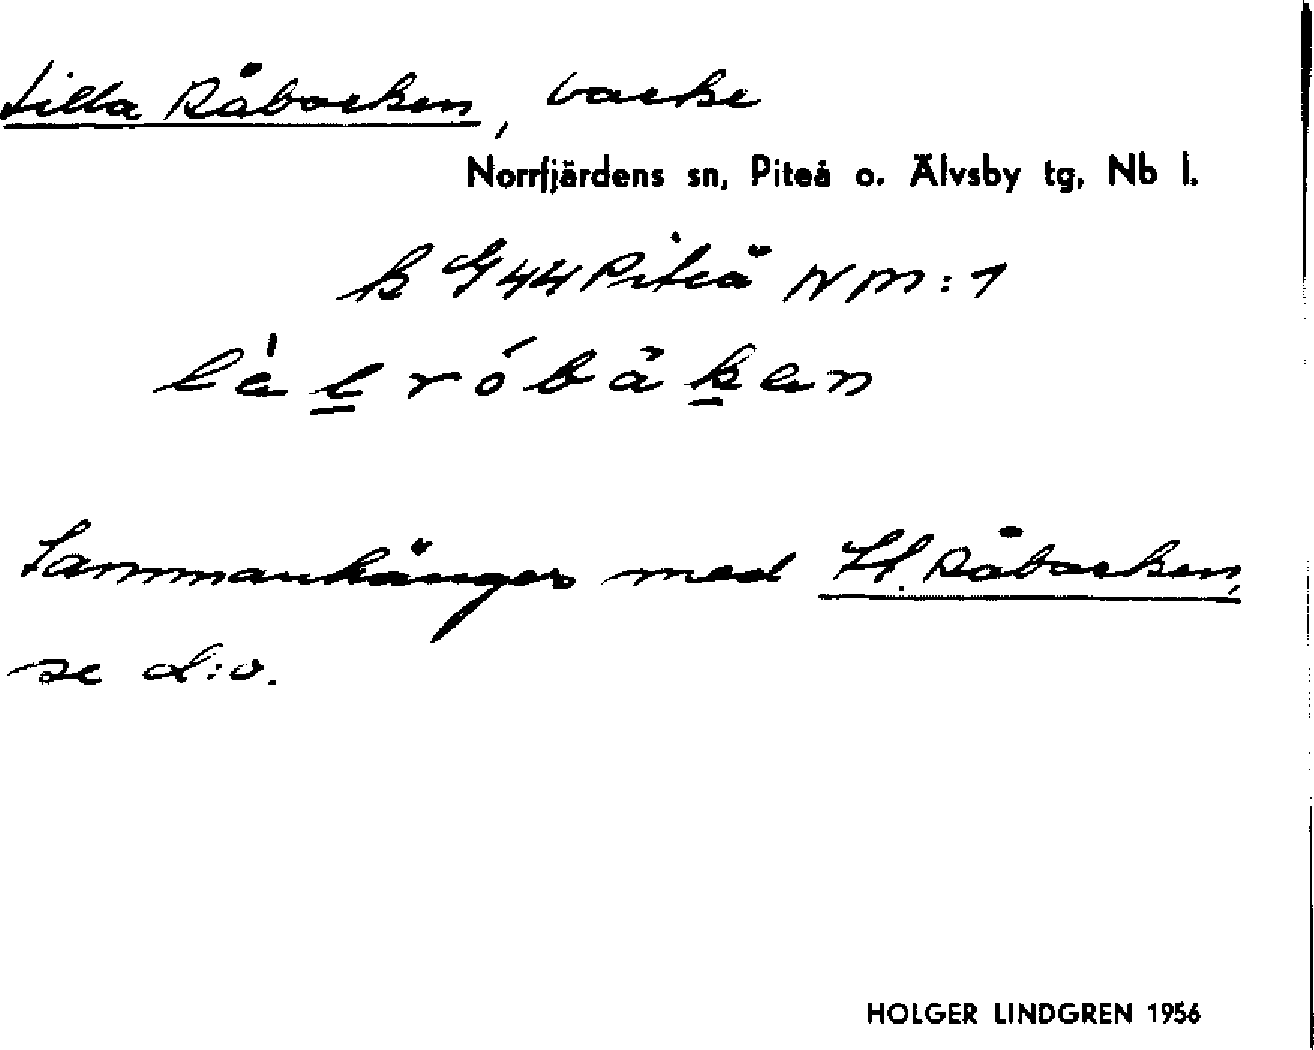 Lilla Råbacken, backe
Norrfjärdens sn, Piteå o. Älvsby tg, Nb l.
Piteå NM:1
Sammanhänger med St. Råbacken,
se d:o.
HOLGER LINDGREN 1956